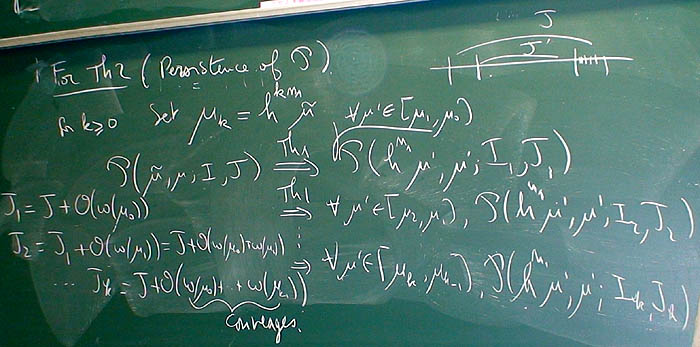 J
J'
For Th2 (Persistence of P)
for k≥0 set μ_k = h^{km} μ̃ ∀μ'∈[μ₁,μ₀)
P(μ̃,μ,I,J) Th1 ⟹ P(h^m μ',μ';I₁,J₁)
J₁ = J+O(ω(μ₀)) Th1 ⟹ ∀μ'∈[μ₂,μ₁), P(h^m μ',μ';I₂,J₂)
J₂ = J₁+O(ω(μ₁)) = J+O(ω(μ₀)+ω(μ₁)) ⋮
... J_k = J+O(ω(μ₀)+..+ω(μ_{k-1})) ⟹ ∀μ'∈[μ_k,μ_{k-1}), P(h^m μ',μ';I_k,J_k)
converges.